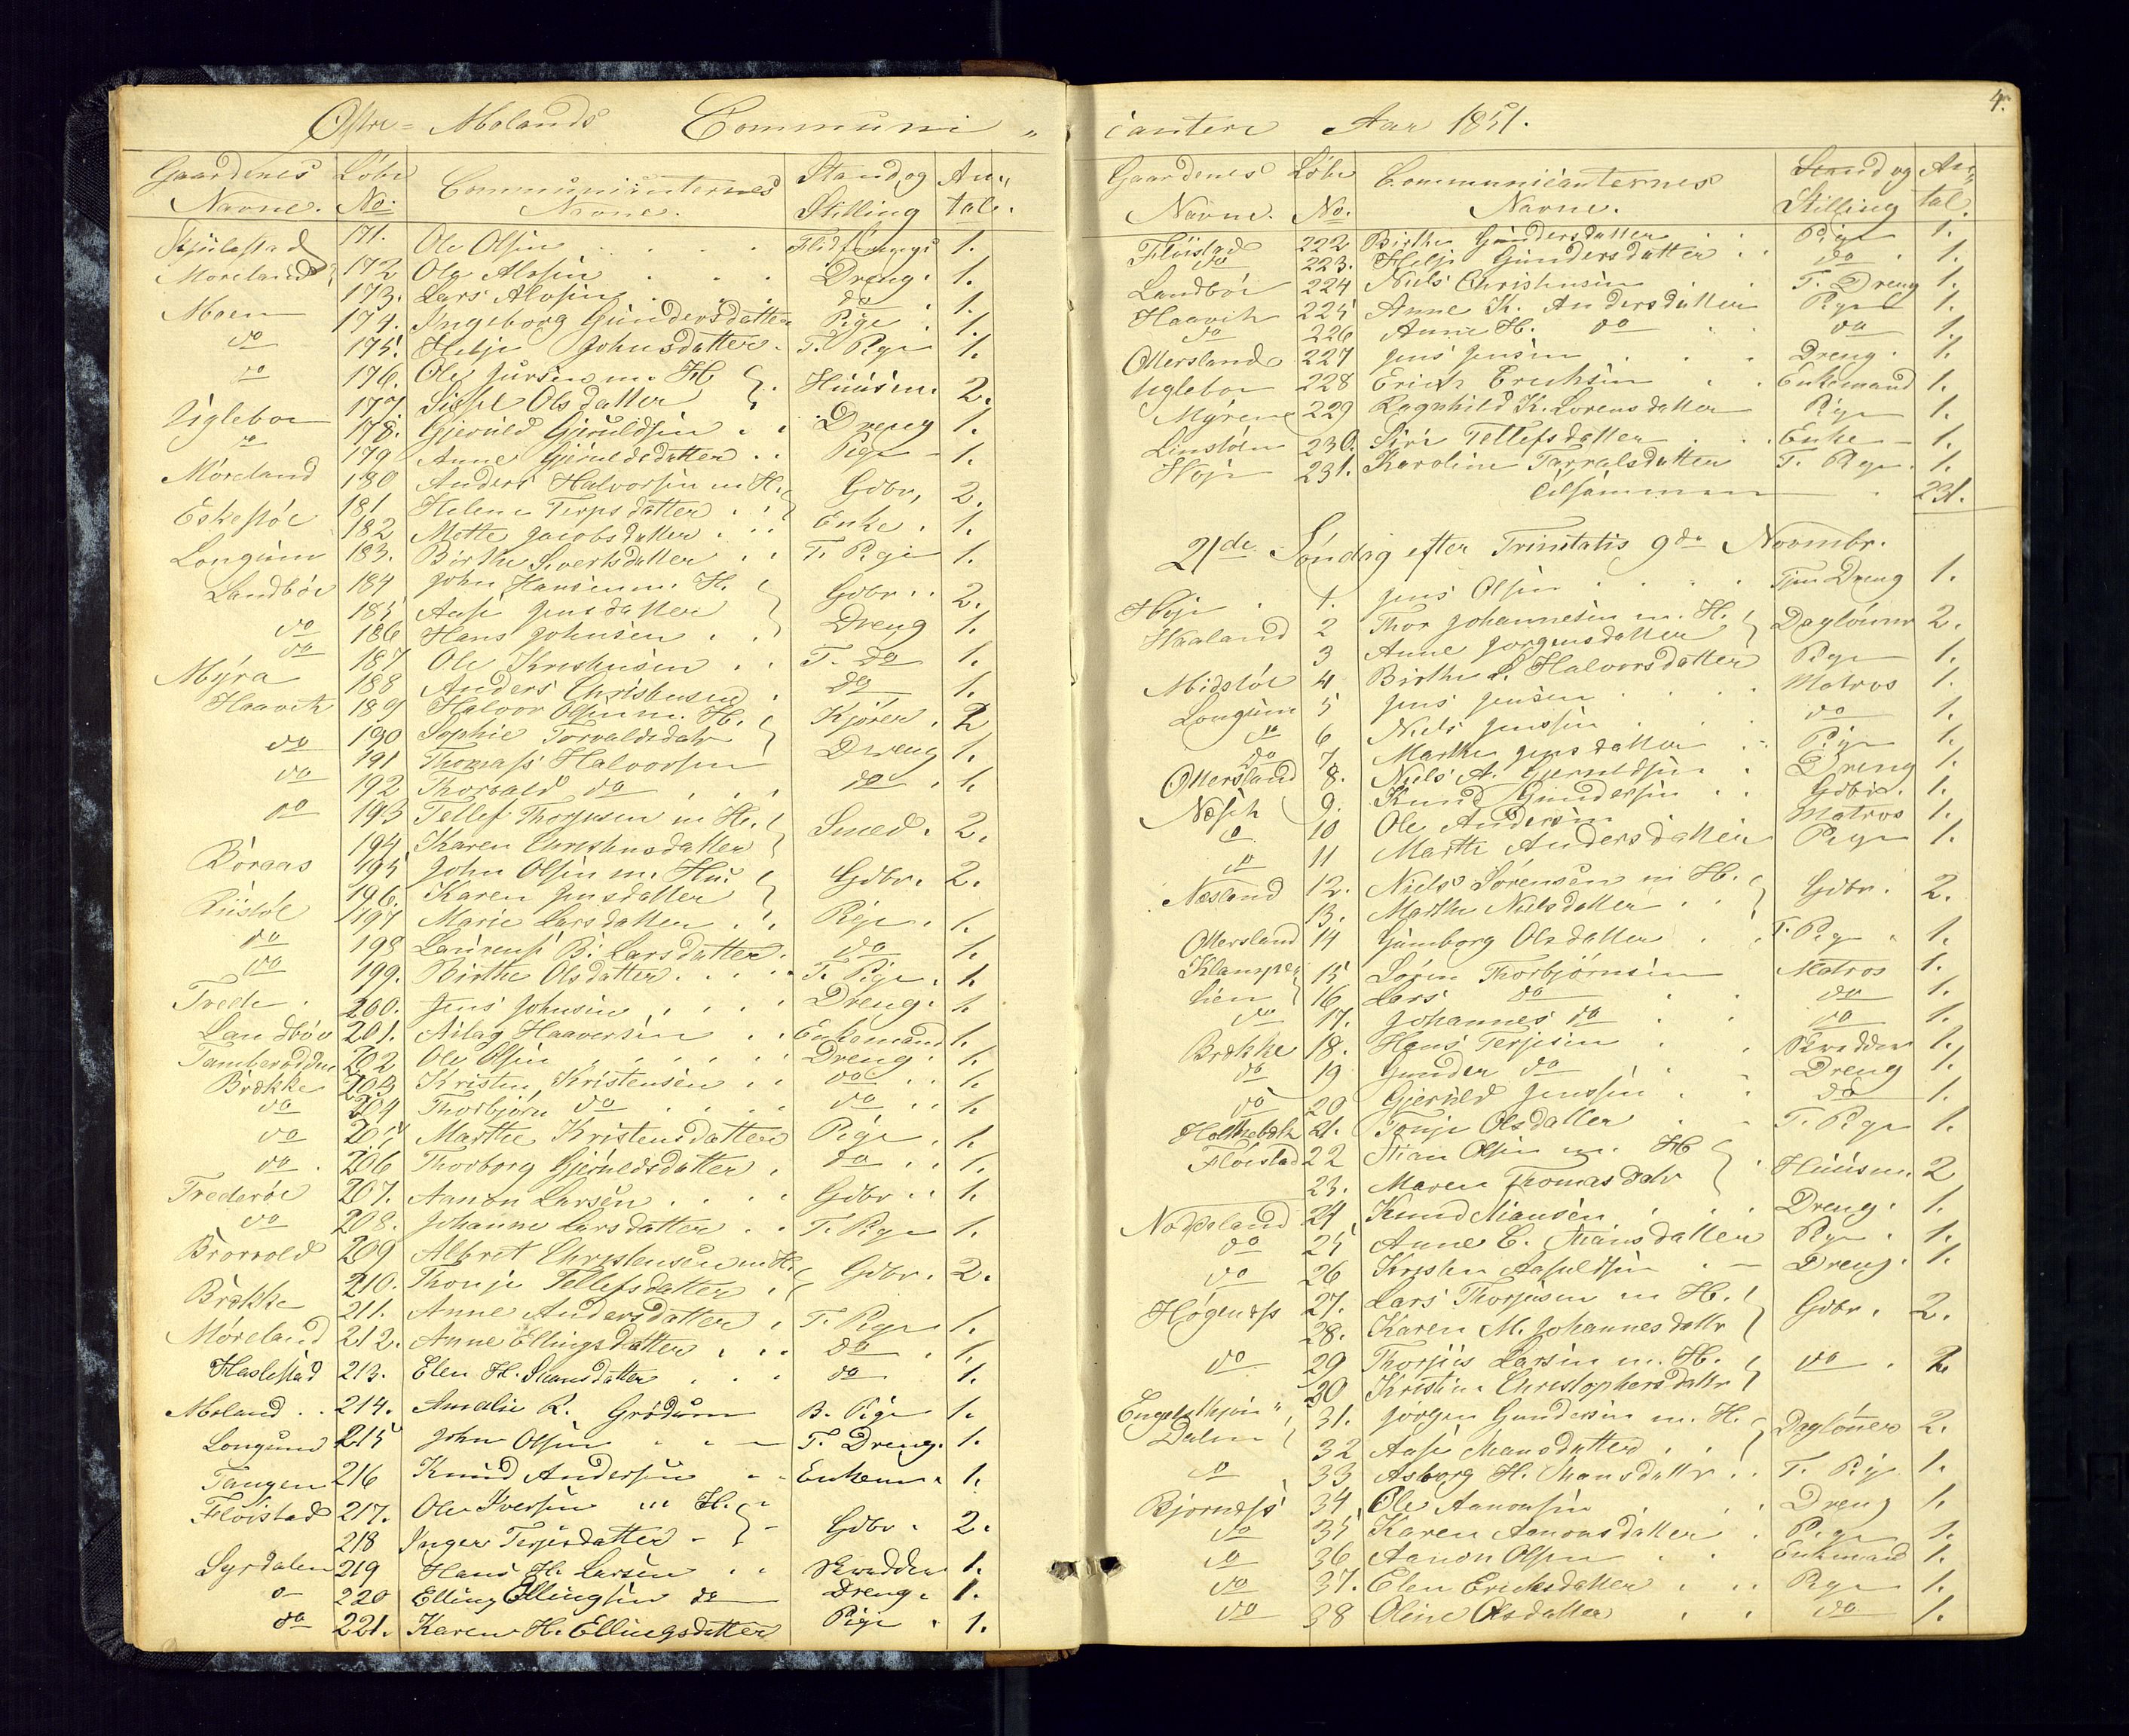 Østre = Molands Communi „
Gaardenes Løbe Communicanternes Stand og An„
Navne. No. Navne. Stilling tal.
171. Ole Olsen 1.
Moreland 172 Ole Alvsen Dreng. 1.
173. Lars Alvsen do 1.
Moen 174. Ingeborg Gundersdatter Pige 1.
do 175. Helje Johnsdatter T. Pige 1.
do 176. Ole Jursen m. H Huusm. 2.
177. Sissel Olsdatter
Ugleboe 178. Gjeruld Gjeruldsen Dreng 1.
do 179 Anne Gjeruldsdatter Pige 1.
Møreland 180 Anders Halvorsen m H. Gdbr, 2.
181 Helene Terjesdatter
Eskestøe 182 Mette Jacobsdatter Enke. 1.
Longum 183. Birthe Sivertsdatter T. Pige 1.
Landbøe 184 John Hansen m. H. Gdbr. 2.
185 Aase Jensdatter
do 186 Hans Johnsen Dreng 1.
do 187 Ole Kristensen T. do 1.
Myra 188 Anders Christensen do 1.
Haavik 189 Halvor Olsen m. H. Kjører. 2
190 Sophie Torvaldsdatr
do 191 Thomass Halvorsen Dreng 1.
do 192 Thorvald do do 1.
do 193 Tellef Thorjesen m H. Smed. 2.
194 Karen Christensdatter
Boraas 195 John Olsen m. Hu. Gdbr. 2.
196. Karen Jensdatter
Riistøl 197 Marie Larsdatter Pige 1.
do 198 Laurense B. Larsdatter do 1.
do 199. Birthe Olsdatter T. Pige. 1.
Trede 200. Jens Johnsen Dreng. 1.
Landbøe 201. Aslag Haaversen Enkemand 1.
202 Ole Olsen Dreng. 1.
Brække 203 Kristen Kristensen do 1.
do 204 Thorbjørn do do 1.
do 205 Marthe Kristensdatter Pige. 1.
do 206 Thorborg Gjeruldsdatter do 1.
Trederøe 207. Aanon Larsen Gdbr 1.
do 208. Johanne Larsdatter T. Pige 1.
Brorvold 209 Albret Christensen m H. Gdbr. 2.
210. Thonje Tellefsdatter
Brække 211. Anne Andersdatter T. Pige 1.
Møreland 212. Anne Ellingsdatter do 1.
Haslestad 213. Elen H. Steansdatter do 1.
Moland 214. Amalie R. Grødum B. Pige 1.
Longum 215 John Olsen T. Dreng. 1.
Tangen 216 Knud Andersen Enkem. 1.
Fløistad 217. Ole Iversen m H. Gdbr. 2.
218 Inger Terjesdatter
Syrdalen 219 Hans H. Larsen Skrædder 1.
o 220 Elling Ellingsen do Dreng. 1.
do 221. Karen H. Ellingsdatter Pige 1.
4.
icantere Aar 1851.
Gaardenes Løbe Communicanternes Stand og An„
Navne. No. Navne. Stilling tal.
Fløistad 222 Birthe Gundersdatter Pige 1.
do 223. Helje Gundersdatter do 1.
Landbøe 224 Niels Christensen T. Dreng 1.
Haavik 225 Anne K. Andersdatter Pige 1.
do 226 Anne H. do do 1.
Ottersland 227 Jens Jensen Dreng. 1.
Ugleboe 228 Erich Erichsen Enkemand 1.
Myrene 229 Ragnhild K. Lorensdatter Pige 1.
Linstøen 230. Siri Tellefsdatter Enke 1.
Høje 231. Karoline Tarralsdatter T. Pige. 1.
Tilsammen 231.
21de Søndag efter Trinitatis 9de Novembr.
Høje 1. Jens Olsen Tjen Dreng 1.
Haaland 2 Thor Johannesen m. H. Dagløner 2.
3 Anne Jørgensdatter
Midstøe 4 Birthe S. Halvorsdatter Pige 1.
Longum 5 Jens Jensen Matros 1.
do 6 Niels Jenssen do 1.
do 7 Marthe Jensdatter Pige 1.
Ottersland 8. Niels A. Gjeruldsen Dreng 1.
Næsik 9. Knud Gundersen Gdbr. 1.
o 10 Ole Andersen Matros 1.
do 11 Marthe Andersdatter Pige 1.
Næsland 12. Niels Sørensen m H. Gdbr. 2.
13. Marthe Nielsdatter
Ottersland 14 Gumborg Olsdatter T. Pige 1.
Klampe„ 15 Søren Thorbjørnsen Matros 1.
lien 16 Lars do do 1.
do 17. Johannes do do 1.
Brække 18. Hans Terjesen Skrædder 1.
do 19 Gunder do Dreng 1.
do 20 Gjeruld Jenssen do 1.
Holtebæk 21. Tonje Olsdatter T. Pige 1.
Fløistad 22 Stian Olsen m. H Huusm. 2
23. Maren Thomasdatr
24 Knud Mansen Dreng. 1.
do 25 Anne C. Mansdatter Pige 1.
do 26 Kristen Aasuldsen Dreng. 1.
Høgenæss 27. Lars Thorjusen m H. Gdbr. 2.
28. Karen M. Johannesdattr
do 29 Thorjus Larsen m. H. do 2
30 Kristine Christophersdattr
Engelskjøn„ 31. Jørgen Gundersen m. H. Dagløner 2.
Dalen 32 Aase Mansdatter
do 33 Asborg H. Mansdattr T. Pige 1.
Bjornæss 34 Ole Aanonsen Dreng 1.
do 35 Karen Aanonsdatter Pige 1.
do 36 Aanon Olsen Enkemand 1.
do 37. Elen Ericksdatter Pige 1.
do 38 Oline Olsdatter do 1.